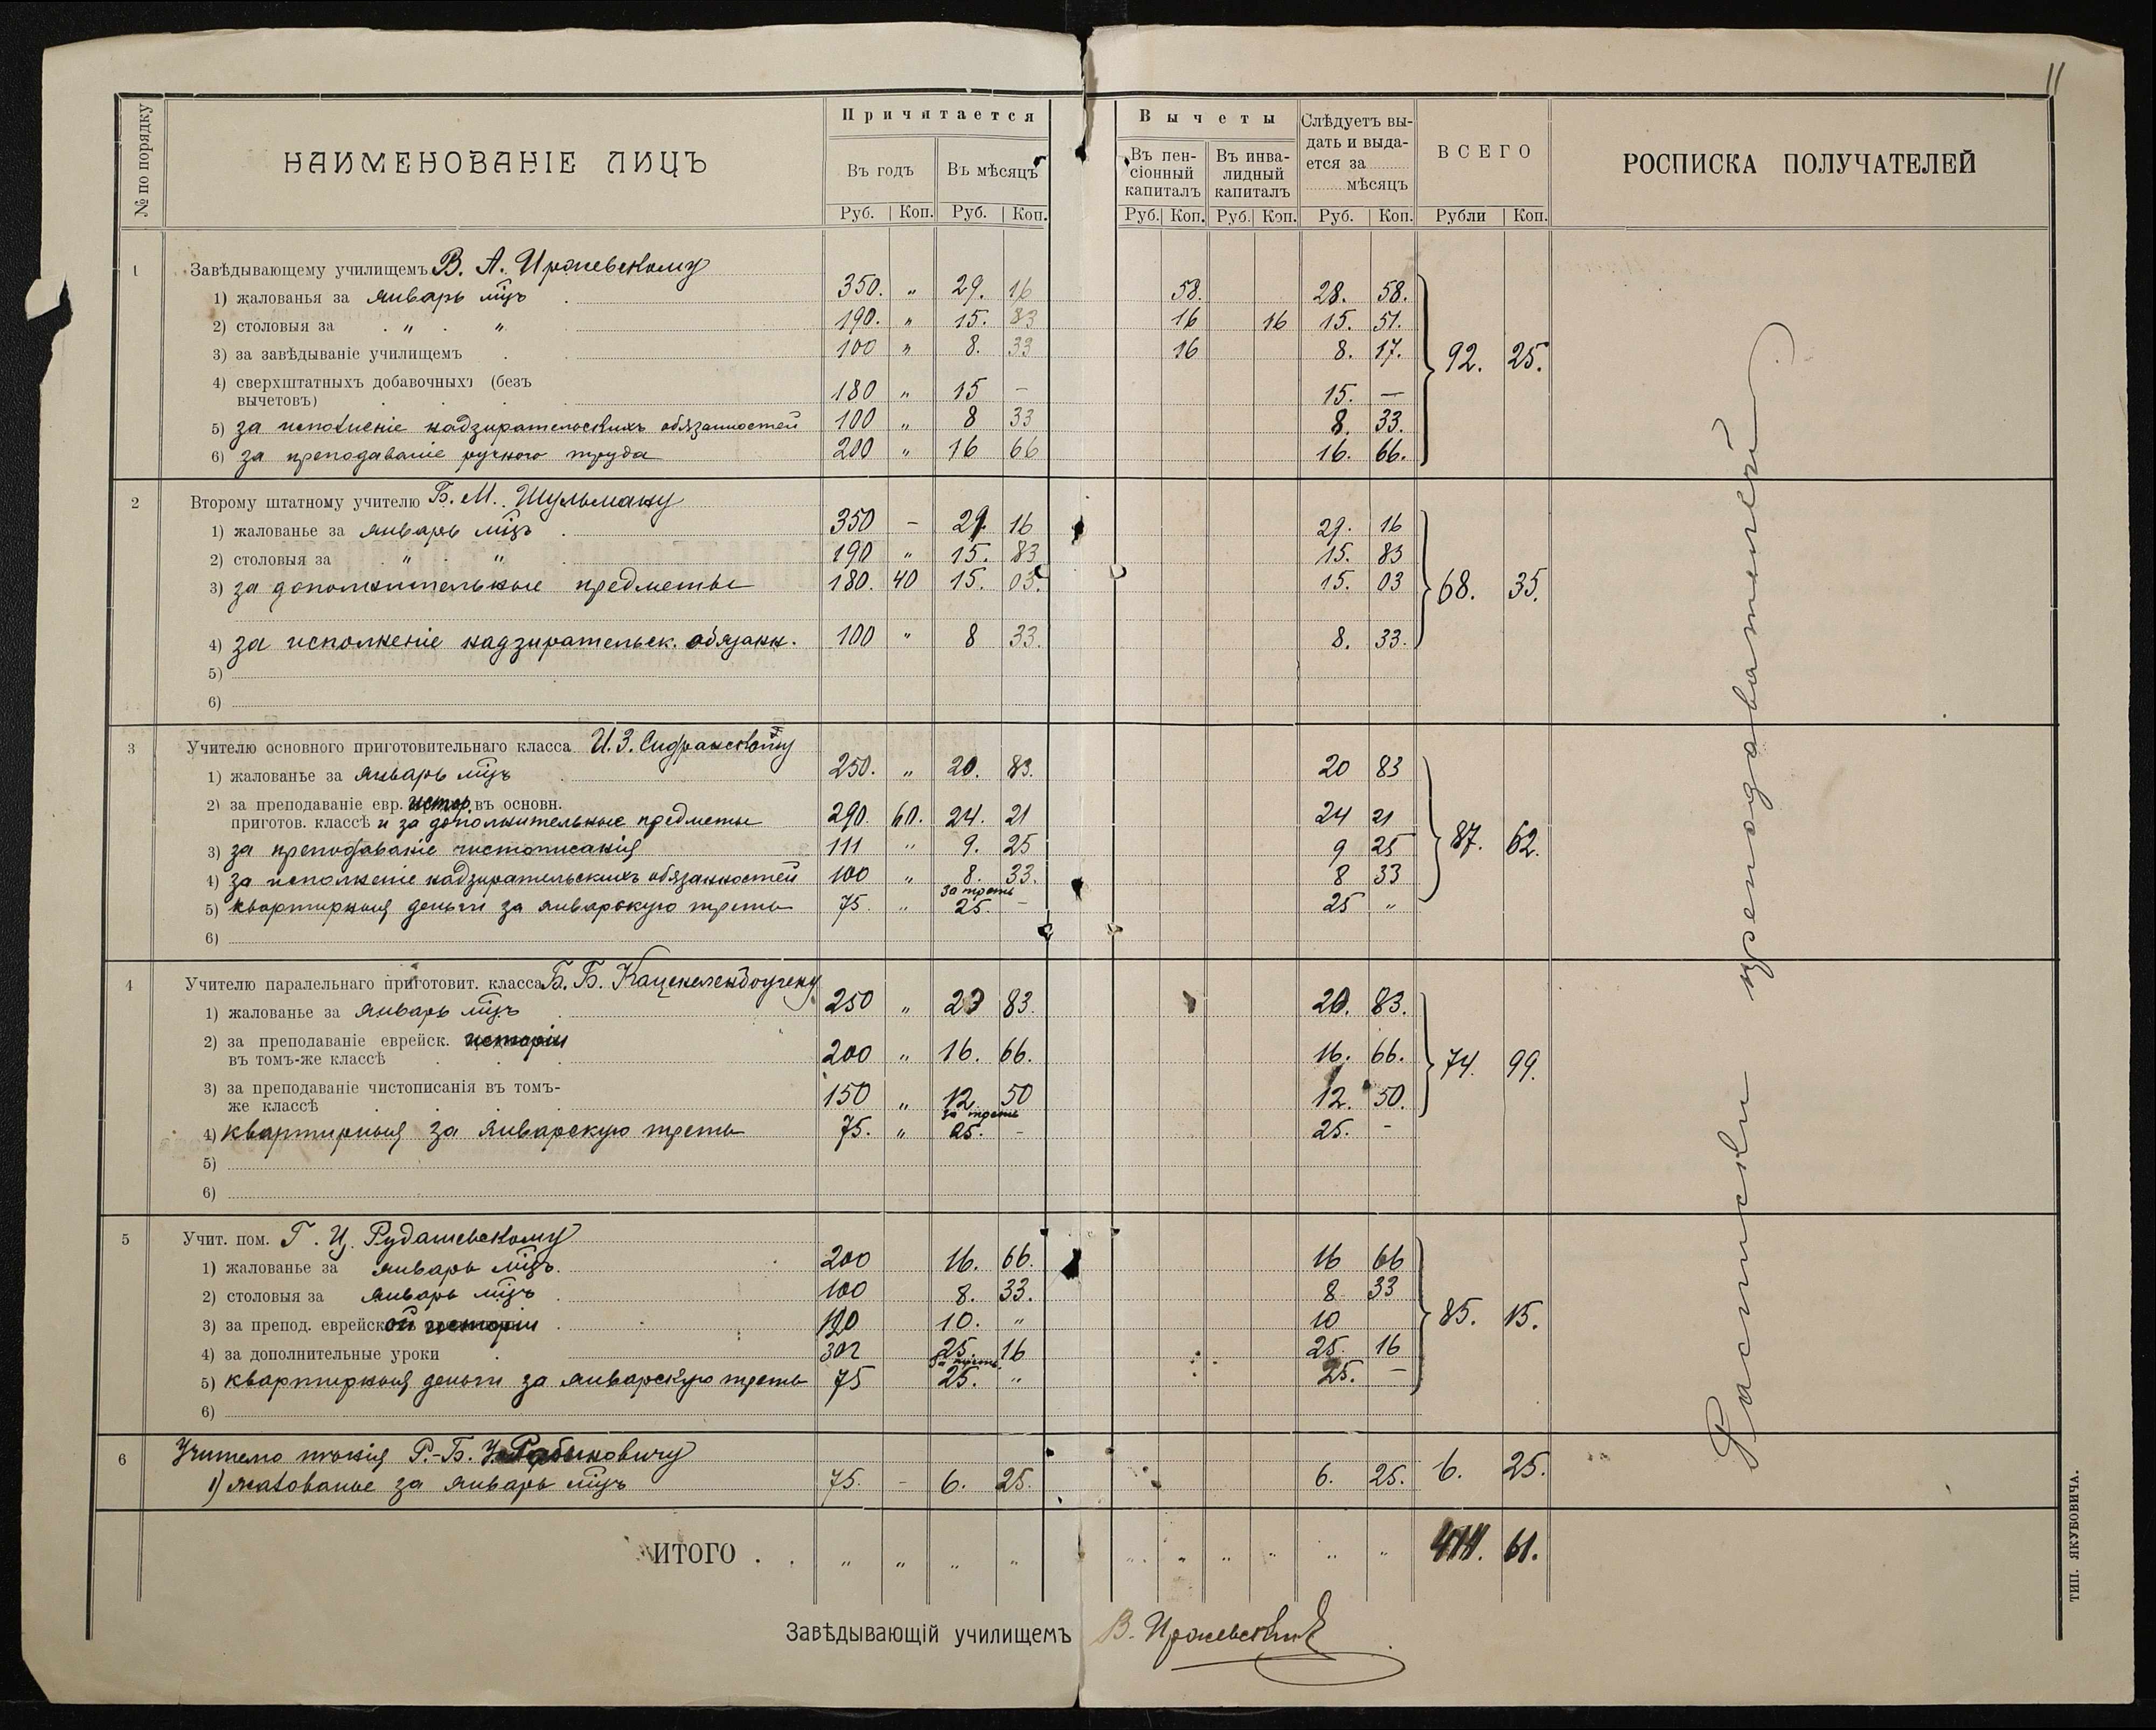 11
№ по порядку
НАИМЕНОВАНІЕ ЛИЦЪ
Причитается
Въ годъ
Въ мѣсяцъ
Руб. Коп. Руб. Коп.
Вычеты
Въ пен-
сіонный
капиталъ
Въ инва-
лидный
капиталъ
Руб. Коп. Руб. Коп.
Слѣдуетъ вы-
дать и выда-
ется за
мѣсяцъ
Руб. Коп.
ВСЕГО
Рубли Коп.
РОСПИСКА ПОЛУЧАТЕЛЕЙ
1 Завѣдывающему училищемъ В. А. Иржевскому
1) жалованья за январь мцъ 350. " 29. 16 58. 28. 58.
2) столовыя за " " 190. " 15. 83 16 16 15. 51.
3) за завѣдываніе училищемъ 100 " 8. 33 16 8. 17. 92. 25.
4) сверхштатныхъ добавочныхъ (безъ
вычетовъ) 180 " 15 — 15. —
5) за исполненіе надзирательскихъ обязанностей 100 " 8 33 8. 33.
6) за преподаваніе ручного труда 200 " 16 66 16. 66.
2 Второму штатному учителю Б. М. Шульману
1) жалованье за январь мцъ 350 — 29. 16 29. 16
2) столовыя за " " 190 " 15. 83 15. 83
3) за дополнительные предметы 180. 40 15. 03. 15. 03 68. 35.
4) за исполненіе надзирательск. обязанн. 100 " 8 33. 8. 33.
5)
6)
3 Учителю основного приготовительнаго класса И. З.
1) жалованье за январь мцъ 250. " 20. 83. 20 83
2) за преподаваніе евр. истор. въ основн.
приготов. классѣ и за дополнительные предметы 290. 60. 24. 21 24 21
3) за преподаваніе чистописанія 111 " 9. 25 9 25 87. 62.
4) за исполненіе надзирательскихъ обязанностей 100 " 8. 33. 8 33
за треть
5) квартирныя деньги за январскую треть 75. " 25. — 25 "
6)
4 Учителю паралельнаго приготовит. класса Б. Б. Каценеленбогену
1) жалованье за январь мцъ 250 " 20 83. 20. 83.
2) за преподаваніе еврейск. исторіи
въ томъ-же классѣ 200 " 16. 66. 16. 66. 74. 99.
3) за преподаваніе чистописанія въ томъ-
же классѣ 150 " 12. 50 12. 50.
за треть
4) квартирныя за январскую треть 75. " 25. - 25. -
5)
6)
5 Учит. пом. Г. И. Рудашевскому
1) жалованье за январь мцъ 200 16. 66. 16 66
2) столовыя за январь мцъ 100 8. 33. 8 33
3) за препод. еврейской исторіи 120 10. " 10 85. 15.
4) за дополнительные уроки 302 25. 16 25. 16
за треть
5) квартирныя деньги за январскую треть 75 25. " 25. —
6)
6 Учителю пѣнія Р.-Б. Рабиновичу
1) жалованье за январь мцъ 75. - 6. 25. 6. 25. 6. 25.
ИТОГО . . " " " " " " " " " " 414. 61.
Завѣдывающій училищемъ В. Иржевскій
Расписки преподавателей
ТИП. ЯКУБОВИЧА.